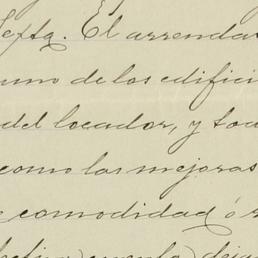 Septa. El arrendat
uno de los edifici
del locador, y tod
como las mejoras
comodidad ó r